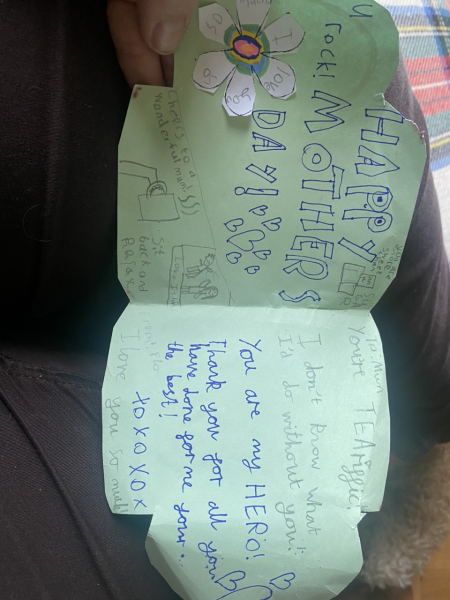 U rock!
HAPPY
MOTHERS
DAY!
I love
you
so
Cheers to a
wonderful mam!
Sit
back and
Relax
To Mum
You're TEAriffic!
I don't know what
I'd do without you!
You are my HERO!
Thank you for all you
have done for me your...
the best!
I love you so much
xoxoxox